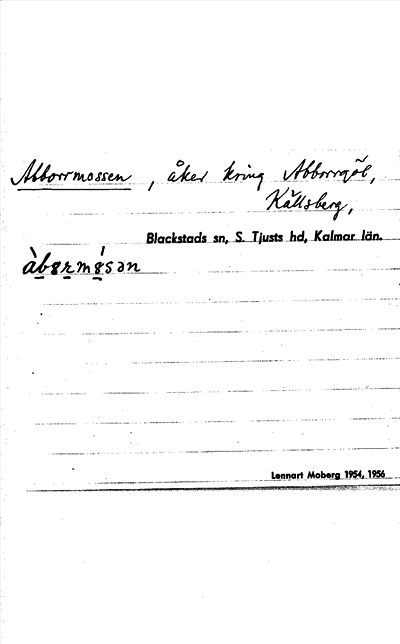 Abborrmossen, åker kring Abborrgöl,
Källsberg,
Blackstads sn, S. Tjusts hd, Kalmar län.
Lennart Moberg 1954, 1956